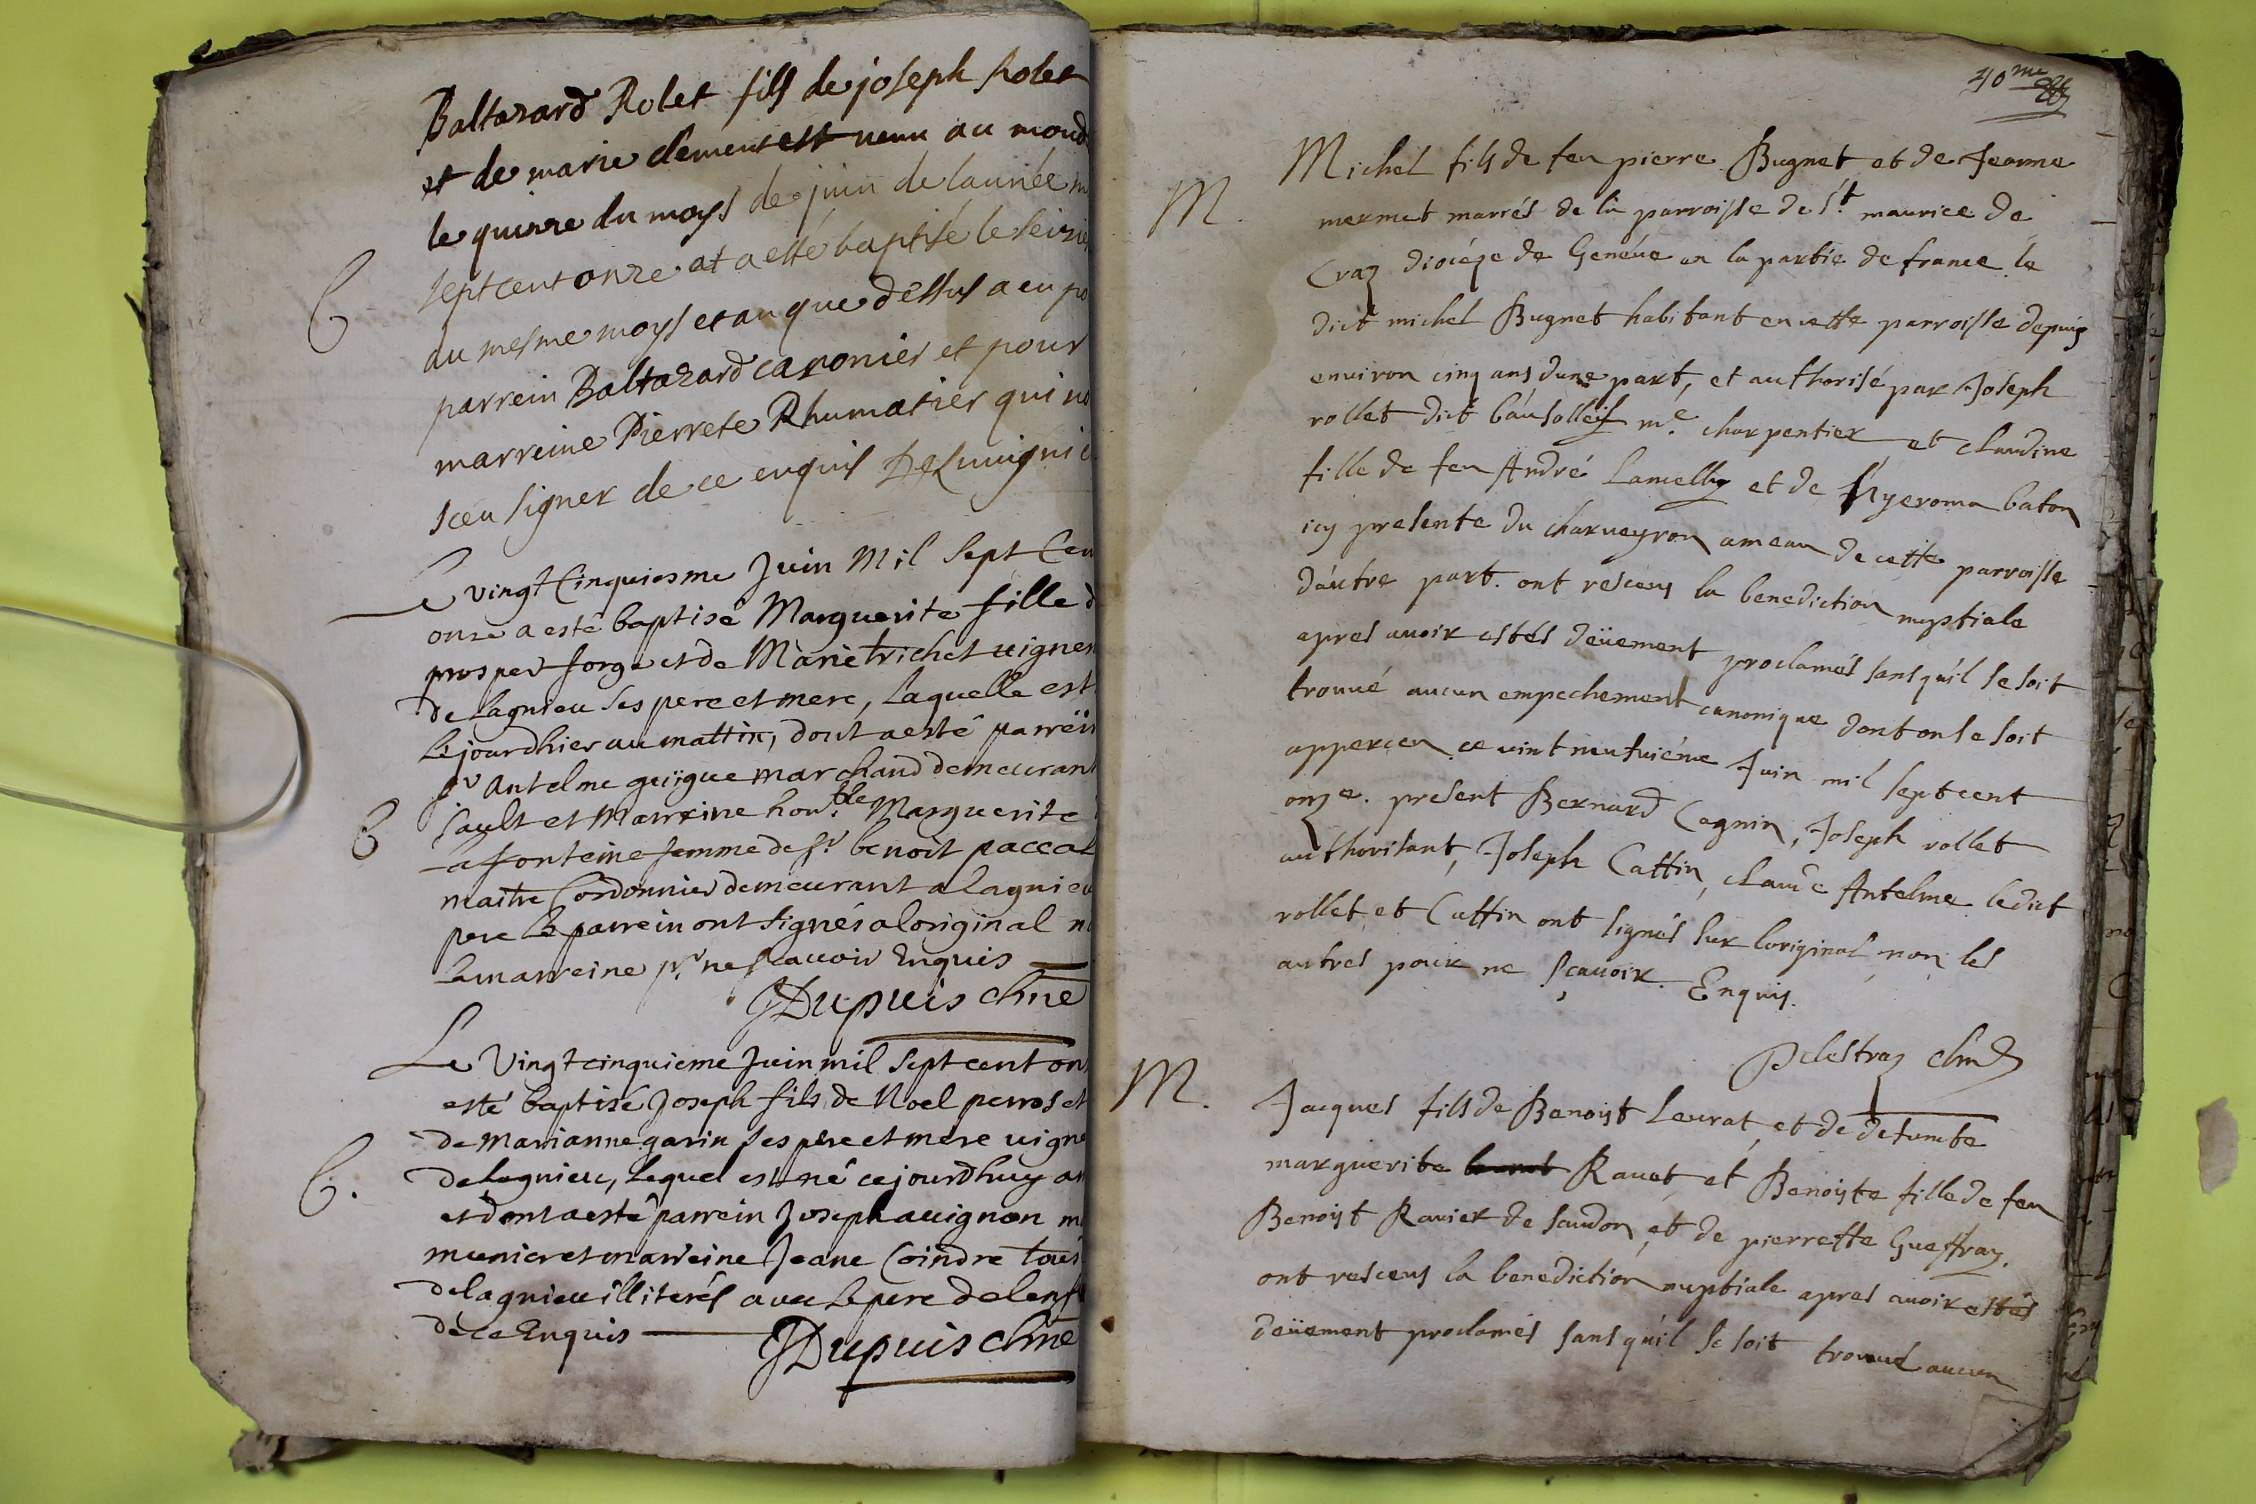 Baltazard Rolet fils de joseph Rolet
et de marie clement est venu au mond
le quinze du moys de juin de lannée m
septcent onze et a esté baptisé le seizie
B
du mesme moys et an que dessus a eu po
parrein Baltazard caronier et pour
marreine Pierrete Rhumatier qui n
sceu signer de ce enquis
Le vingt Cinquiesme Juin Mil Sept Cen
onze a esté baptisé Marguerite fille d
prosper forge et de Marie trichet vigner
de Lagnieu ses pere et mere, Laquelle est
Le jourdhier au mattin, dont a esté parrein
Sr Antelme guigue marchand demeurant
B
Sault et Marreine hon.ble Marguerite
Lafonteine femme de Sr benoit paccal
maitre Cordonnier demeurant a Lagnieu
pere Le parrein ont signés a loriginal n
La marreine pr ne scavoir Enquis
JDupuis chne
Le Vingtcinquieme Juin mil sept cent on
esté baptisé Joseph fils de Noel perros et
de Marianne garin ses pere et mere vigne
B.
de Lagnieu, Lequel est né cejourdhuy a
et dont a esté parrein Joseph auignon m
munier et marreine Jeane Coindre tous
de lagnieu illiterés avec Le pere de lenf
de ce Enquis
JDupuis chne
40me
M.
Michel fils de feu pierre Bugnet et de Jeanne
mermet mariés de la parroisse de St maurice de
Craz diocéze de Genéve en la partie de france le
dict michel Bugnet habitant en cette parroisse depuis
environ cinq ans dune part, et authorisé par Joseph
rollet dict bausolleil me charpentier et claudine
fille de feu André Lamelly et de hyeroma baton
icy presente du charueyron ameau de cette parroisse
dautre part. ont resceus la benediction nuptiale
apres auoir estés deüement proclamés sans quil se soit
trouué aucun empechement canonique dont on se soit
apperceu ce vint neufuiéme Juin mil septcent
onze. present Bernard Cagnin, Joseph rollet
authorisant, Joseph Cattin, claude Antelme ledict
rollet et Cattin ont signés sur loriginal non les
autres pour ne sçauoir. Enquis.
Delestraz chne
M.
Jacques fils de Benoist Leurat et de defuncte
marguerite Rauet et Benoiste fille de feu
Benoist Rauier de Soudon et de pierrette Gueffray.
ont resceus la benediction nuptiale apres auoir estés
deüement proclamés sans quil se soit trouué aucun